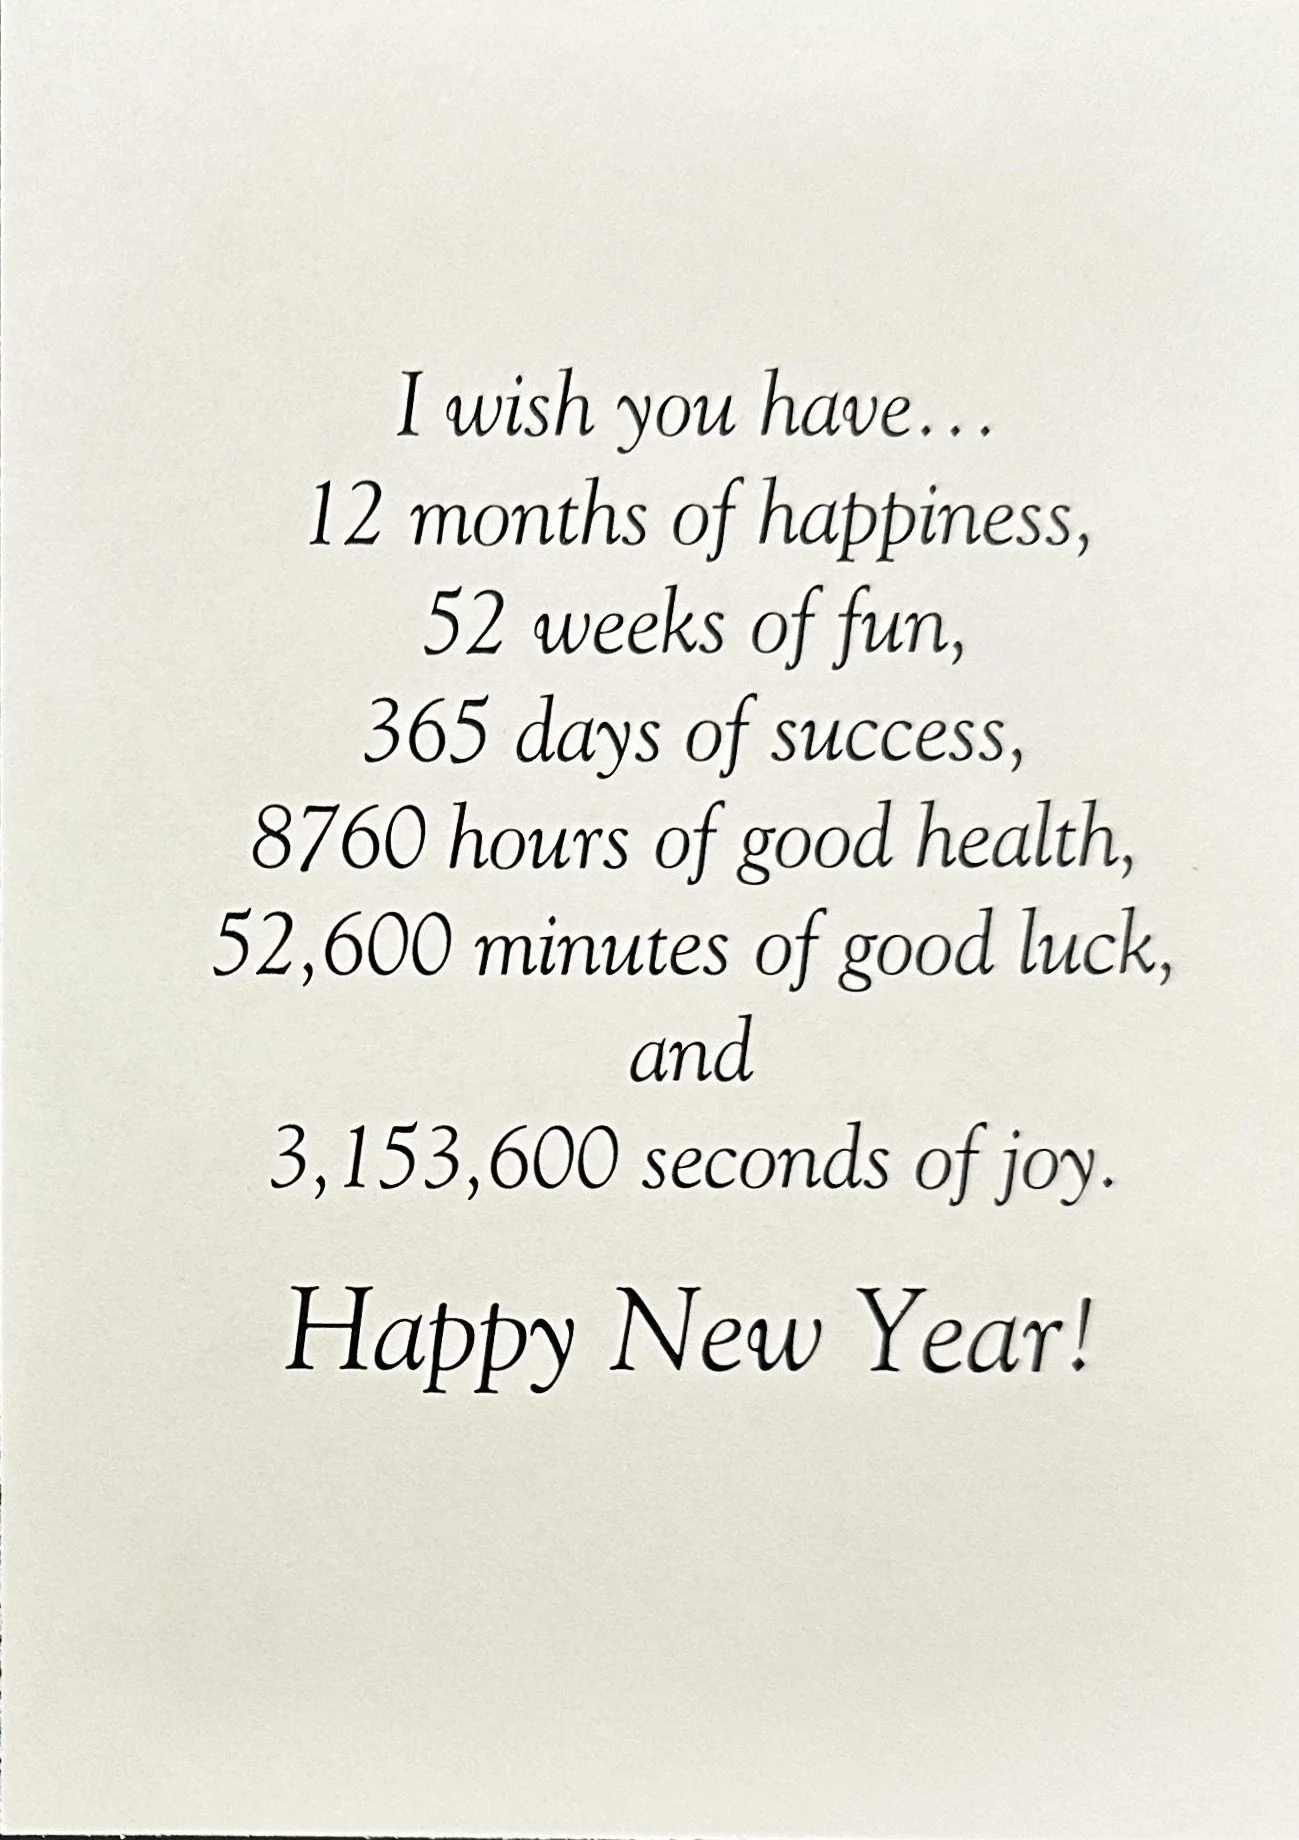 I wish you have...
12 months of happiness,
52 weeks of fun,
365 days of success,
8760 hours of good health,
52,600 minutes of good luck,
and
3,153,600 seconds of joy.
Happy New Year!